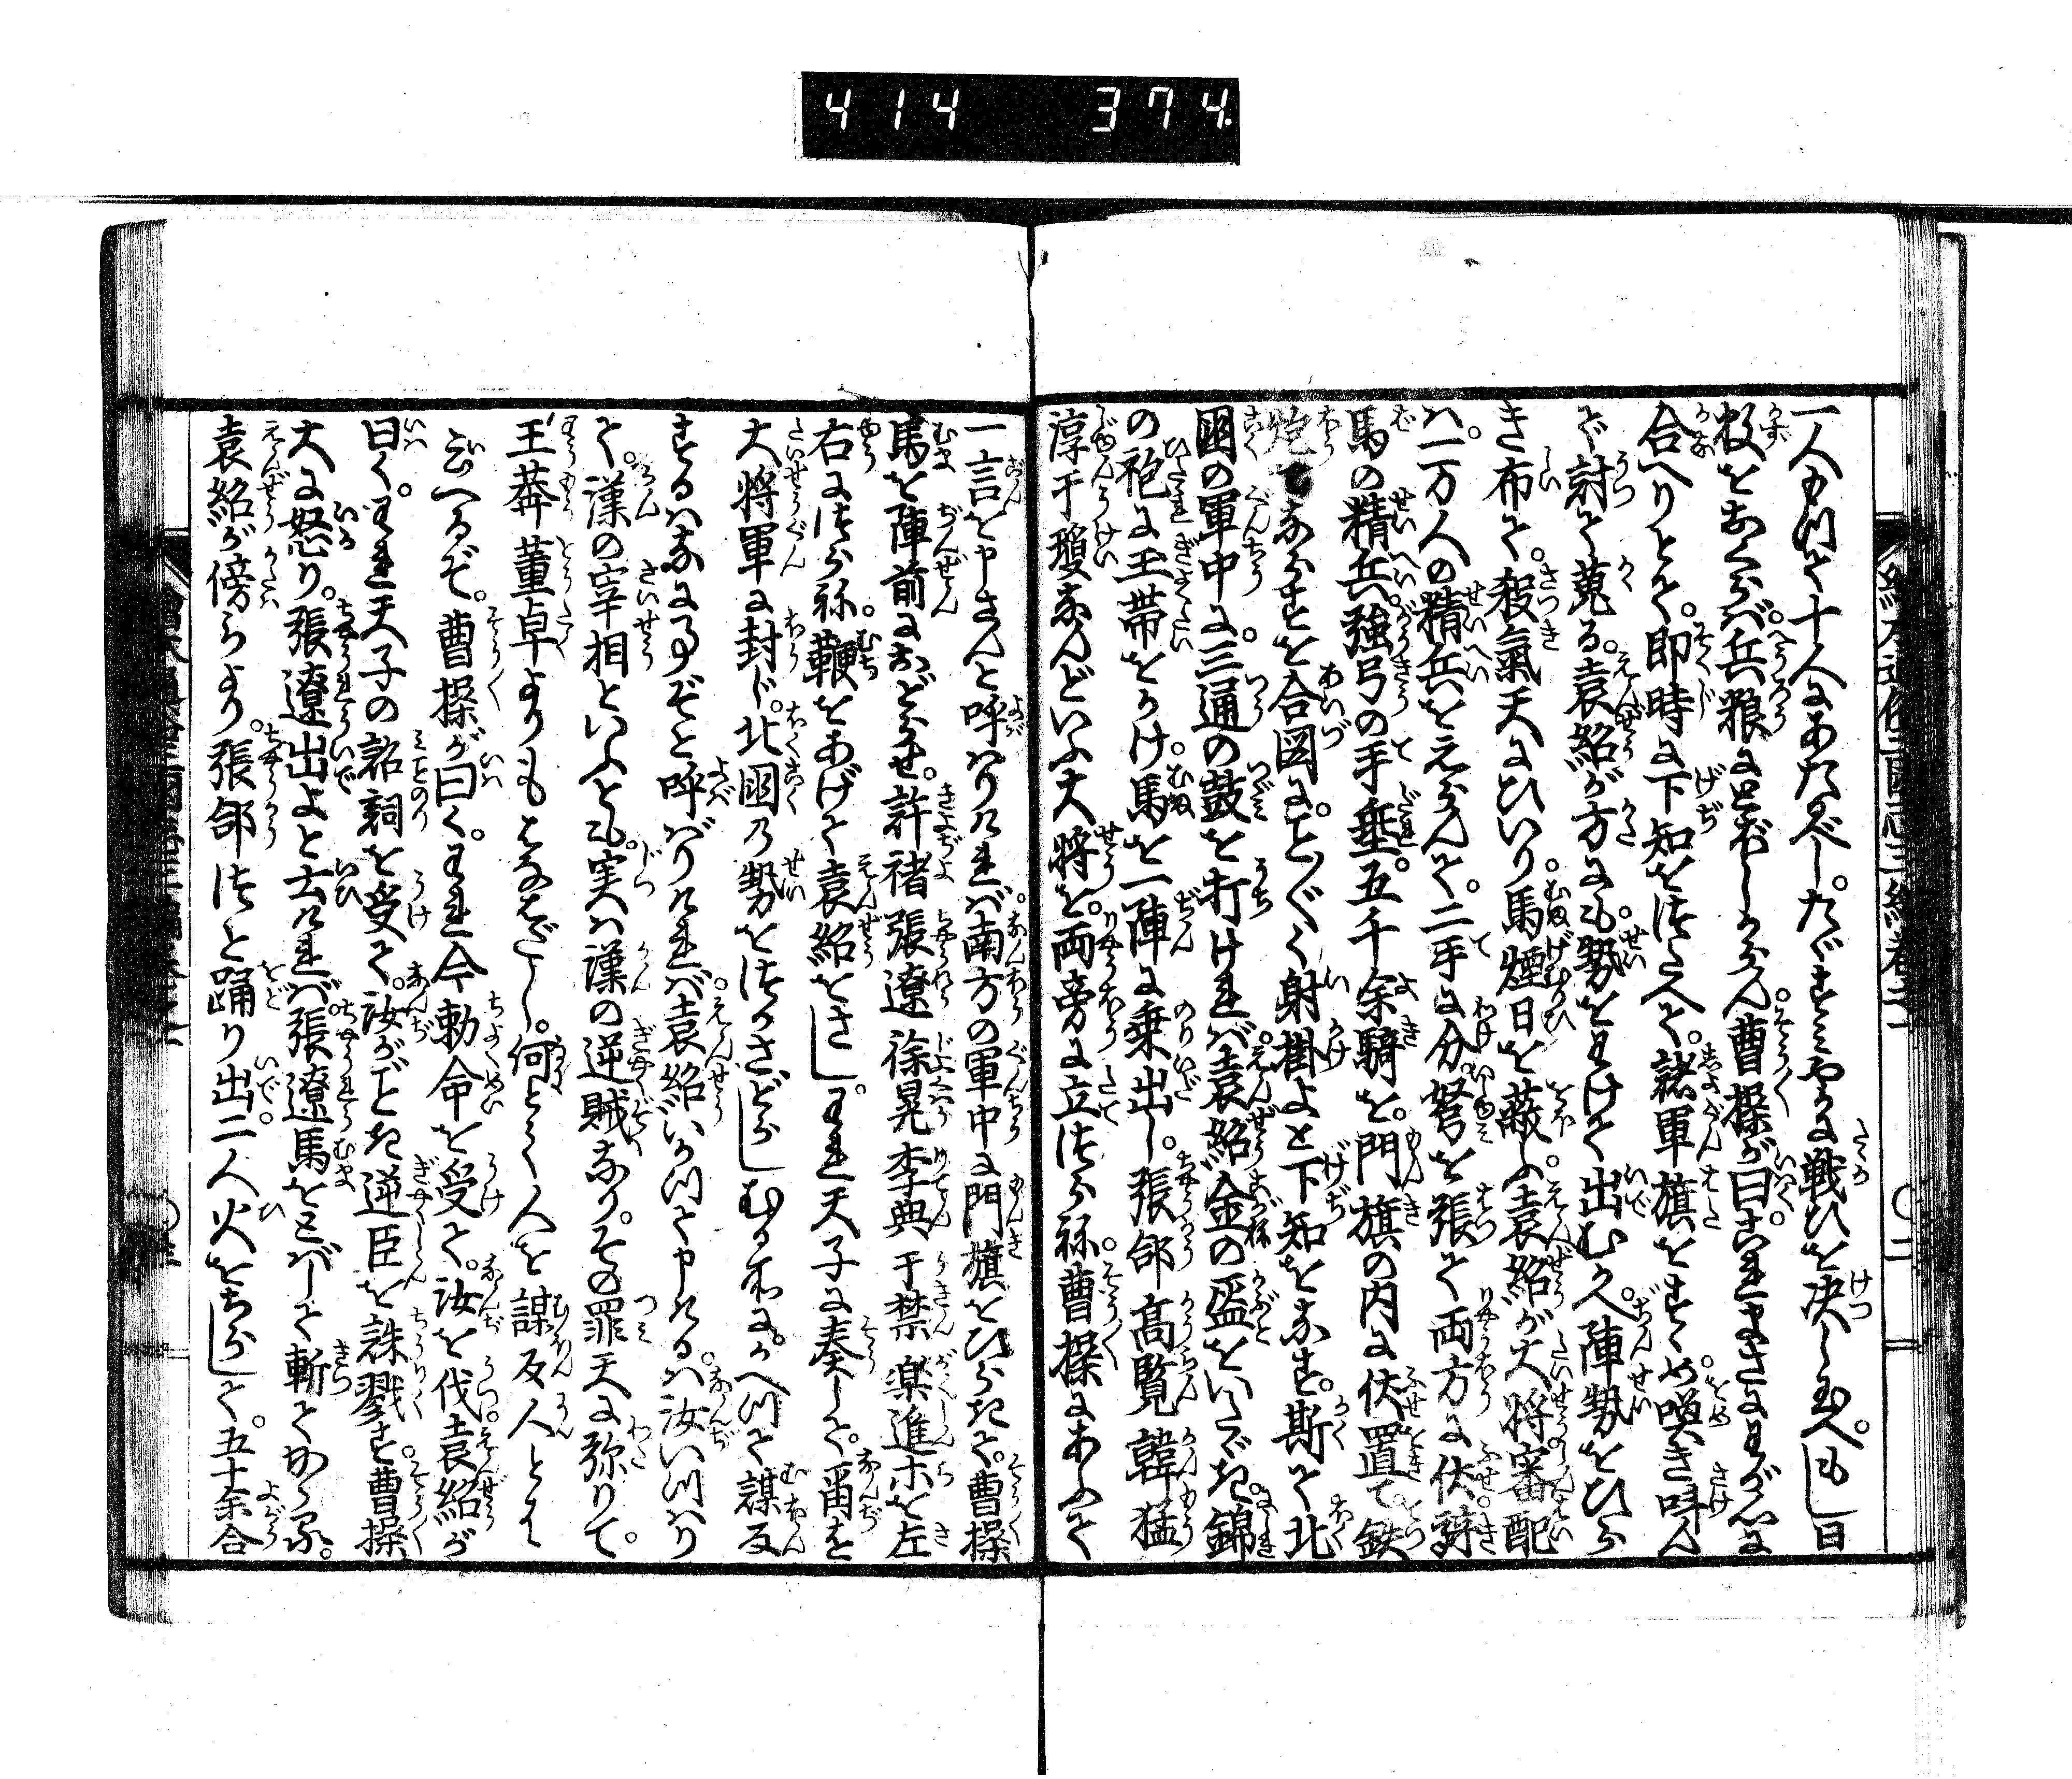 414 374.
一人もつて十人にあたるべし。たゞすみやかに戦ひを決し玉へ。もし日
数をおくらば。兵粮にとぼしからん。曹操が曰。これまさにわが心に
合へりとて。即時に下知をつたへて。諸軍旗をすゝめ。喚き叫ん
で討て蒐る。袁紹が方にも。勢をわけて出むかへ。陣勢をひら
き布て。殺氣天にひいり。馬煙日を蔽ふ。袁紹が大将審配
は。一万人の精兵をえらんで。二手に分。弩を張て両方に伏。
馬の精兵。強弓の手垂。五千余騎を。門旗の内に伏置て。鉄
炮てならすを合図に。とく〴〵く射掛よと下知をなす。斯て北
國の軍中に。三通の鼓を打ければ。袁紹金の盔をいたゞき。錦
の袍に玉帯をかけ。馬を一陣に乗出し。張郃高覧韓猛
淳于瓊なんどいふ大将を。両旁に立つらね。曹操にあふて
一言を申さんと呼はりければ。南方の軍中に門旗をひらきて。曹操
馬を陣前におどらせ。許褚張遼徐晃李典于禁楽進ホを左
右につらね。鞭をあげて袁紹をさし。われ天子に奏して。爾を
大将軍に封じ。北國の勢をつかさどらしむる所に。かへつて謀反
するはなに事ぞと呼ばりければ。袁紹いかつて申けるは。汝いつはり
て。漢の宰相といふとも。実は漢の逆賊なり。その罪天に弥りて。
王莽董卓よりもはなはだし。何とて人を謀反人とは
云へるぞ。曹操が曰く。われ今勅命を受て。汝を伐。袁紹が
曰く。われ天子の詔詞を受て。汝がごとき逆臣を誅戮す。曹操
大に怒り。張遼出よと云ければ。張遼馬をとばして斬てかゝる。
袁紹が傍らより。張郃つと踊り出。二人火をちらして。五十余合